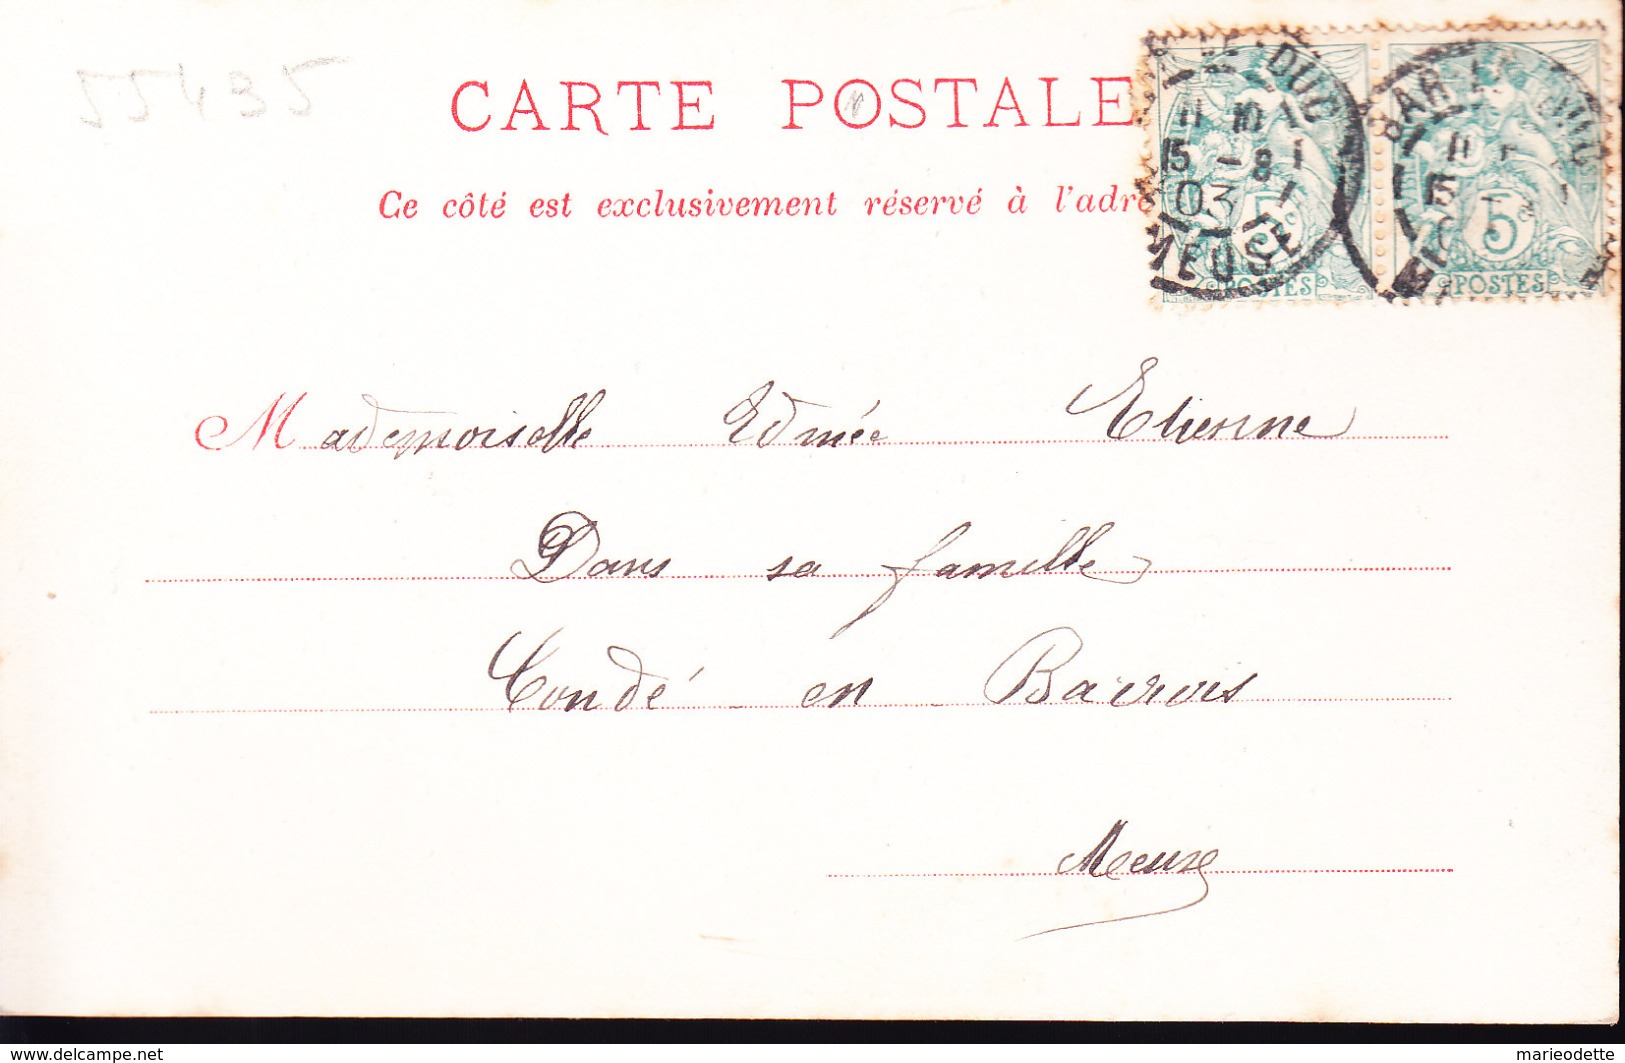 55435
CARTE POSTALE
Ce côté est exclusivement réservé à l'adre
BAR-LE-DUC
11 10
15 -8
03
MEUSE
5c
POSTES
BAR-LE-DUC
11
15
5c
POSTES
Mademoiselle Edmée Etienne
Dans sa famille
Condé en Barrois
Meuse
www.delcampe.net
marieodette